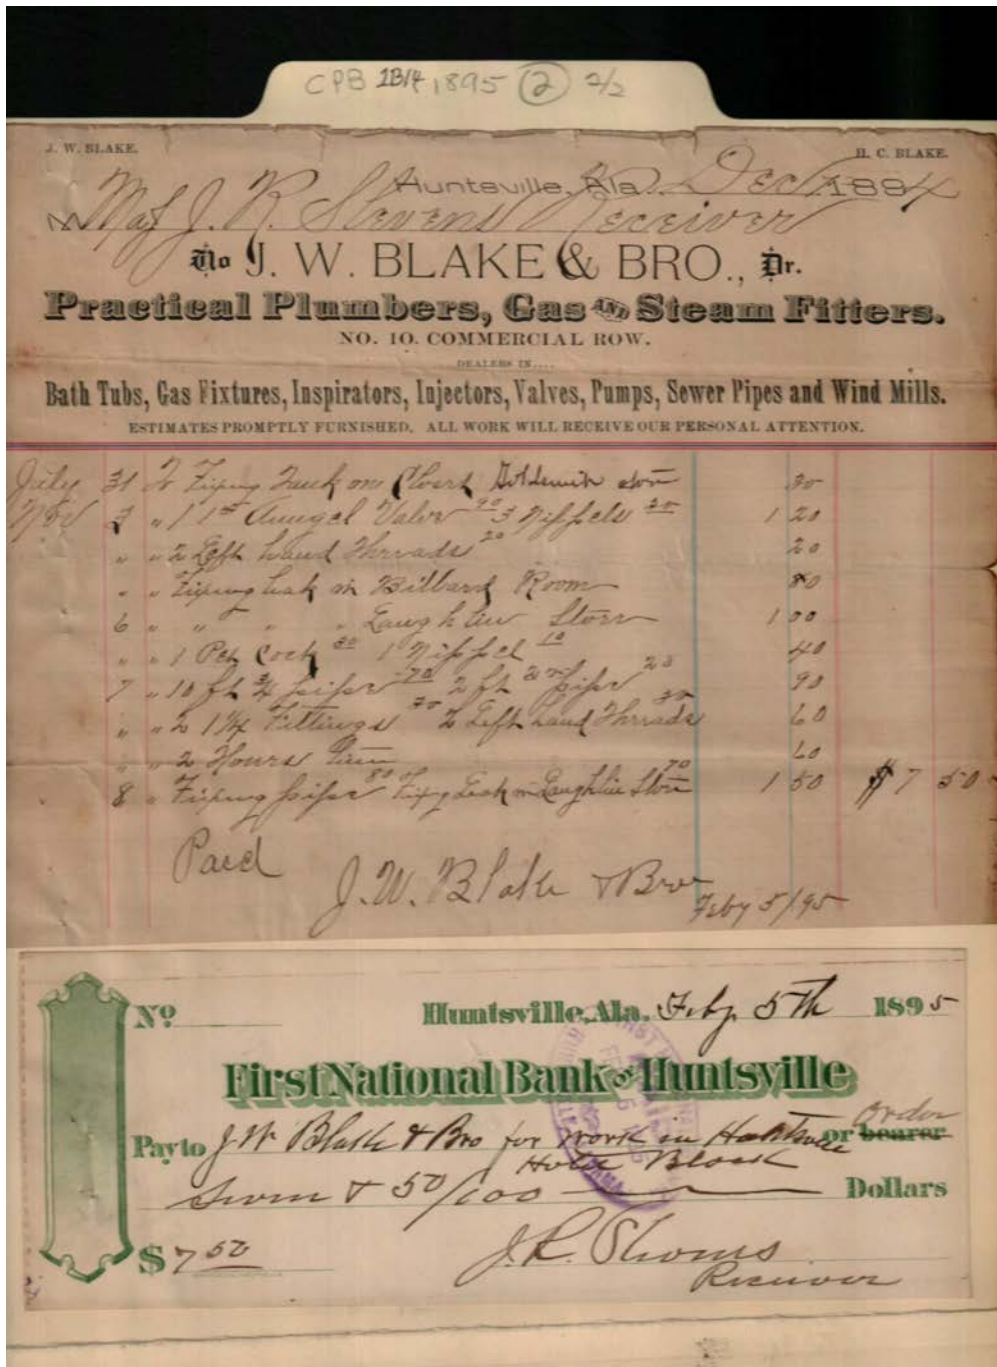 CPB 1B14 1895 (2) 2/2
J. W. BLAKE.
H. C. BLAKE.
Huntsville, Ala. Dec 1894
M Maj J. R. Stevens Receiver
To J. W. BLAKE & BRO., Dr.
Practical Plumbers, Gas AND Steam Fitters.
NO. 10. COMMERCIAL ROW.
DEALERS IN....
Bath Tubs, Gas Fixtures, Inspirators, Injectors, Valves, Pumps, Sewer Pipes and Wind Mills.
ESTIMATES PROMPTLY FURNISHED. ALL WORK WILL RECEIVE OUR PERSONAL ATTENTION.
July 31 To Fixing on Closet 30
Nov 3 " 1 1st Aungel Valve 90 3 Nippels 30 1 20
" " 2 Left hand Thrrads 20 20
" " Fixing leak in Billard Room 80
6 " " " " Laughlin Storr 1 00
" " 1 Pet Cock 30 1 Nippel 10 40
7 " 10 ft 3/4 pipe 70 2 ft pipe 20 90
" " 2 1 1/4 Fittings 2 Left hand Thrrads 60
" " 2 Hours time 60
8 " Fixing pipe 80 Fixing Leak in Laughlin Storr 70 1 50 $7 50
Paid
J. W. Blake & Bro
Feby 5/95
No
Huntsville, Ala. Feby. 5th 1895
First National Bank of Huntsville
Pay to J W Blake & Bro for work in Huntsville or bearer order
Hotel Block
Seven & 50/100 Dollars
$7 50
J. R. Stevens
Receiver